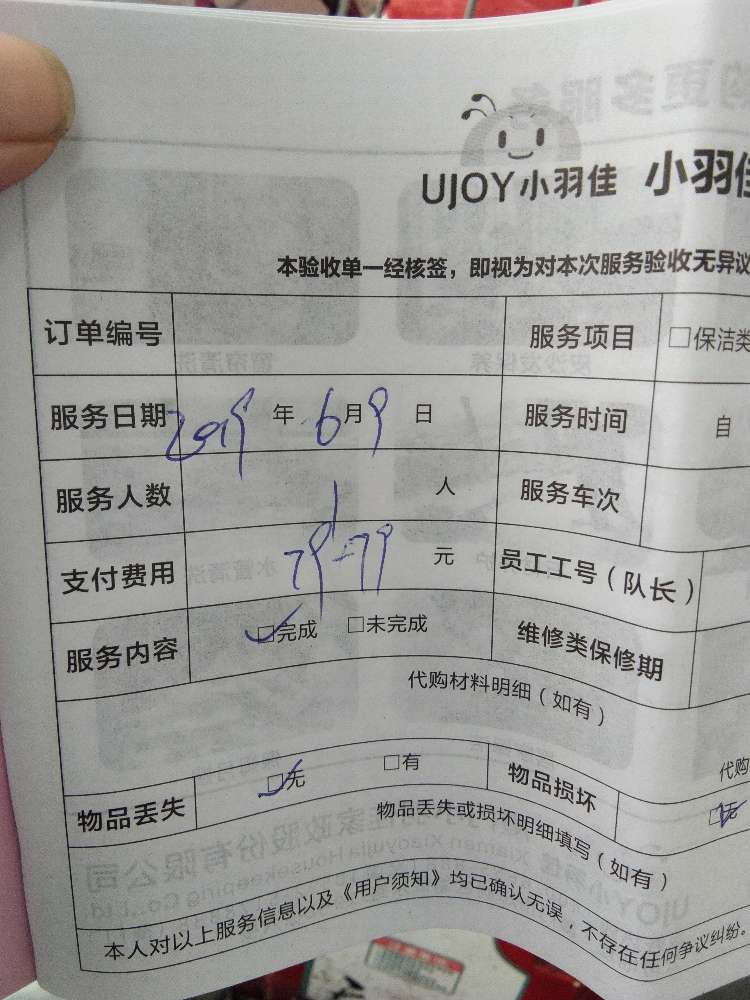 UJOY小羽佳 小羽佳
本验收单一经核签，即视为对本次服务验收无异议
订单编号 服务项目 □保洁类
服务日期 2019年6月9日 服务时间 自
服务人数 1人 服务车次
支付费用 79-79元 员工工号（队长）
服务内容 ☑完成 □未完成 维修类保修期
代购材料明细（如有）
代购
物品丢失 ☑无 □有 物品损坏 ☑无
物品丢失或损坏明细填写（如有）
本人对以上服务信息以及《用户须知》均已确认无误，不存在任何争议纠纷。